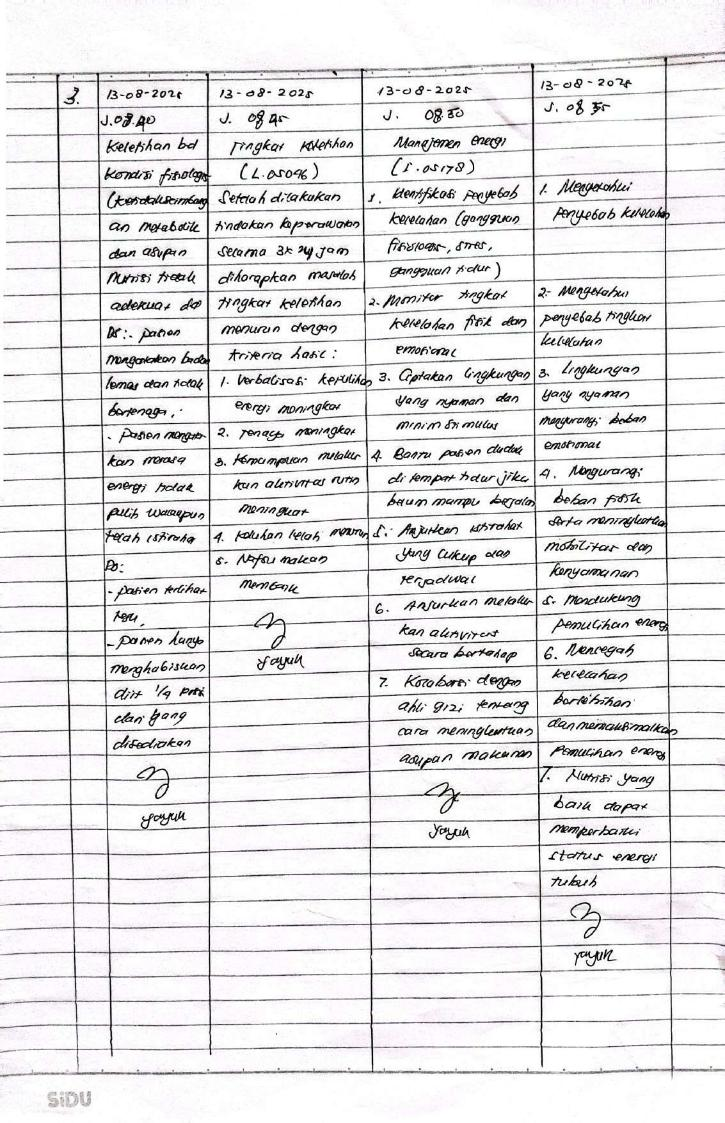 3.
13-08-2025
J. 08.40
Keletihan bd
kondisi fisiologis
(ketidakseimbang
an metabolik
dan asupan
nutrisi tidak
adekuat dd
DS:- pasien
mengatakan badan
lemas dan tidak
bertenaga,
- pasien mengata
kan merasa
energi tidak
pulih walaupun
telah istiraha
DO:
- pasien terlihat
lesu,
- pasien hanya
menghabiskan
diit 1/4 porsi
dari yang
disediakan
yayuk
13-08-2025
J. 08.45
Tingkat keletihan
(L.05046)
Setelah dilakukan
tindakan keperawatan
selama 3x24 jam
diharapkan masalah
tingkat keletihan
menurun dengan
kriteria hasil :
1. Verbalisasi kepulihan
energi meningkat
2. Tenaga meningkat
3. Kemampuan melaku
kan aktivitas rutin
meningkat
4. Keluhan lelah menurun
5. Nafsu makan
membaik
yayuk
13-08-2025
J. 08.50
Manajemen energi
(I.05178)
1. Identifikasi penyebab
kelelahan (gangguan
fisiologis, stres,
gangguan tidur)
2. Monitor tingkat
kelelahan fisik dan
emotional
3. Ciptakan lingkungan
yang nyaman dan
minim stimulus
4. Bantu pasien duduk
di tempat tidur jika
belum mampu berjalan
5. Anjurkan istirahat
yang cukup dan
terjadwal
6. Anjurkan melaku
kan aktivitas
secara bertahap
7. Kolaborsi dengan
ahli gizi tentang
cara meningkatkan
asupan makanan
yayuk
13-08-2025
J. 08.55
1. Mengetahui
penyebab kelelahan
2. Mengetahui
penyebab tingkat
kelelahan
3. Lingkungan
yang nyaman
mengurangi beban
emotional
4. Mengurangi
beban fisik
serta meningkatkan
mobilitas dan
kenyamanan
5. Mendukung
pemulihan energi
6. Mencegah
kelelahan
berlebihan
dan memaksimalkan
pemulihan energi
7. Nutrisi yang
baik dapat
memperbaiki
status energi
tubuh
yayuk
SiDU